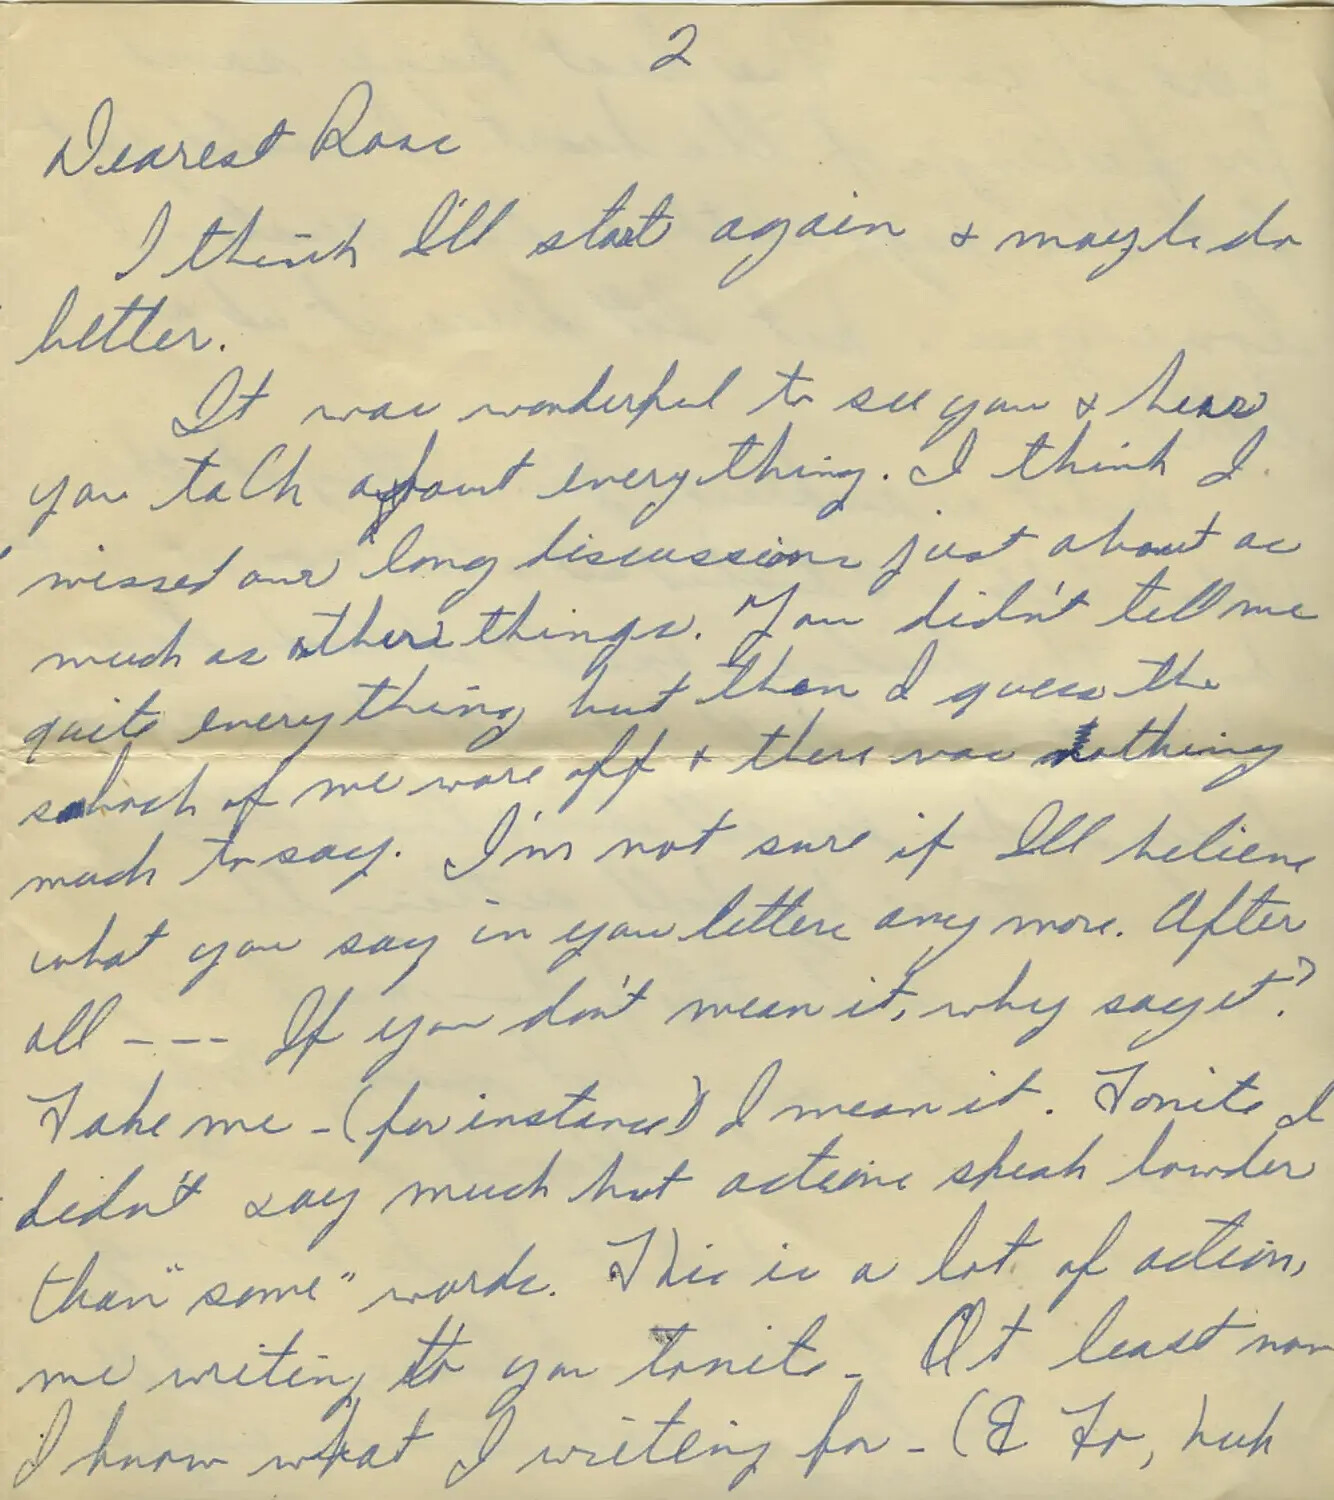 2
Dearest Rose
I think I'll start again & maybe do
better.
It was wonderful to see you & hear
you talk about everything. I think I
missed our long discussions just about as
much as other things. You didn't tell me
quite everything but then I guess the
shock of me wore off & there was nothing
much to say. I'm not sure if I'll believe
what you say in you letters any more. After
all --- If you don't mean it, why say it?
Take me - (for instance) I mean it. Tonite I
didn't say much but actions speak lowder
than "some" words. This is a lot of action,
me writing to you tonite - At least now
I know what I writing for - (& To, huh